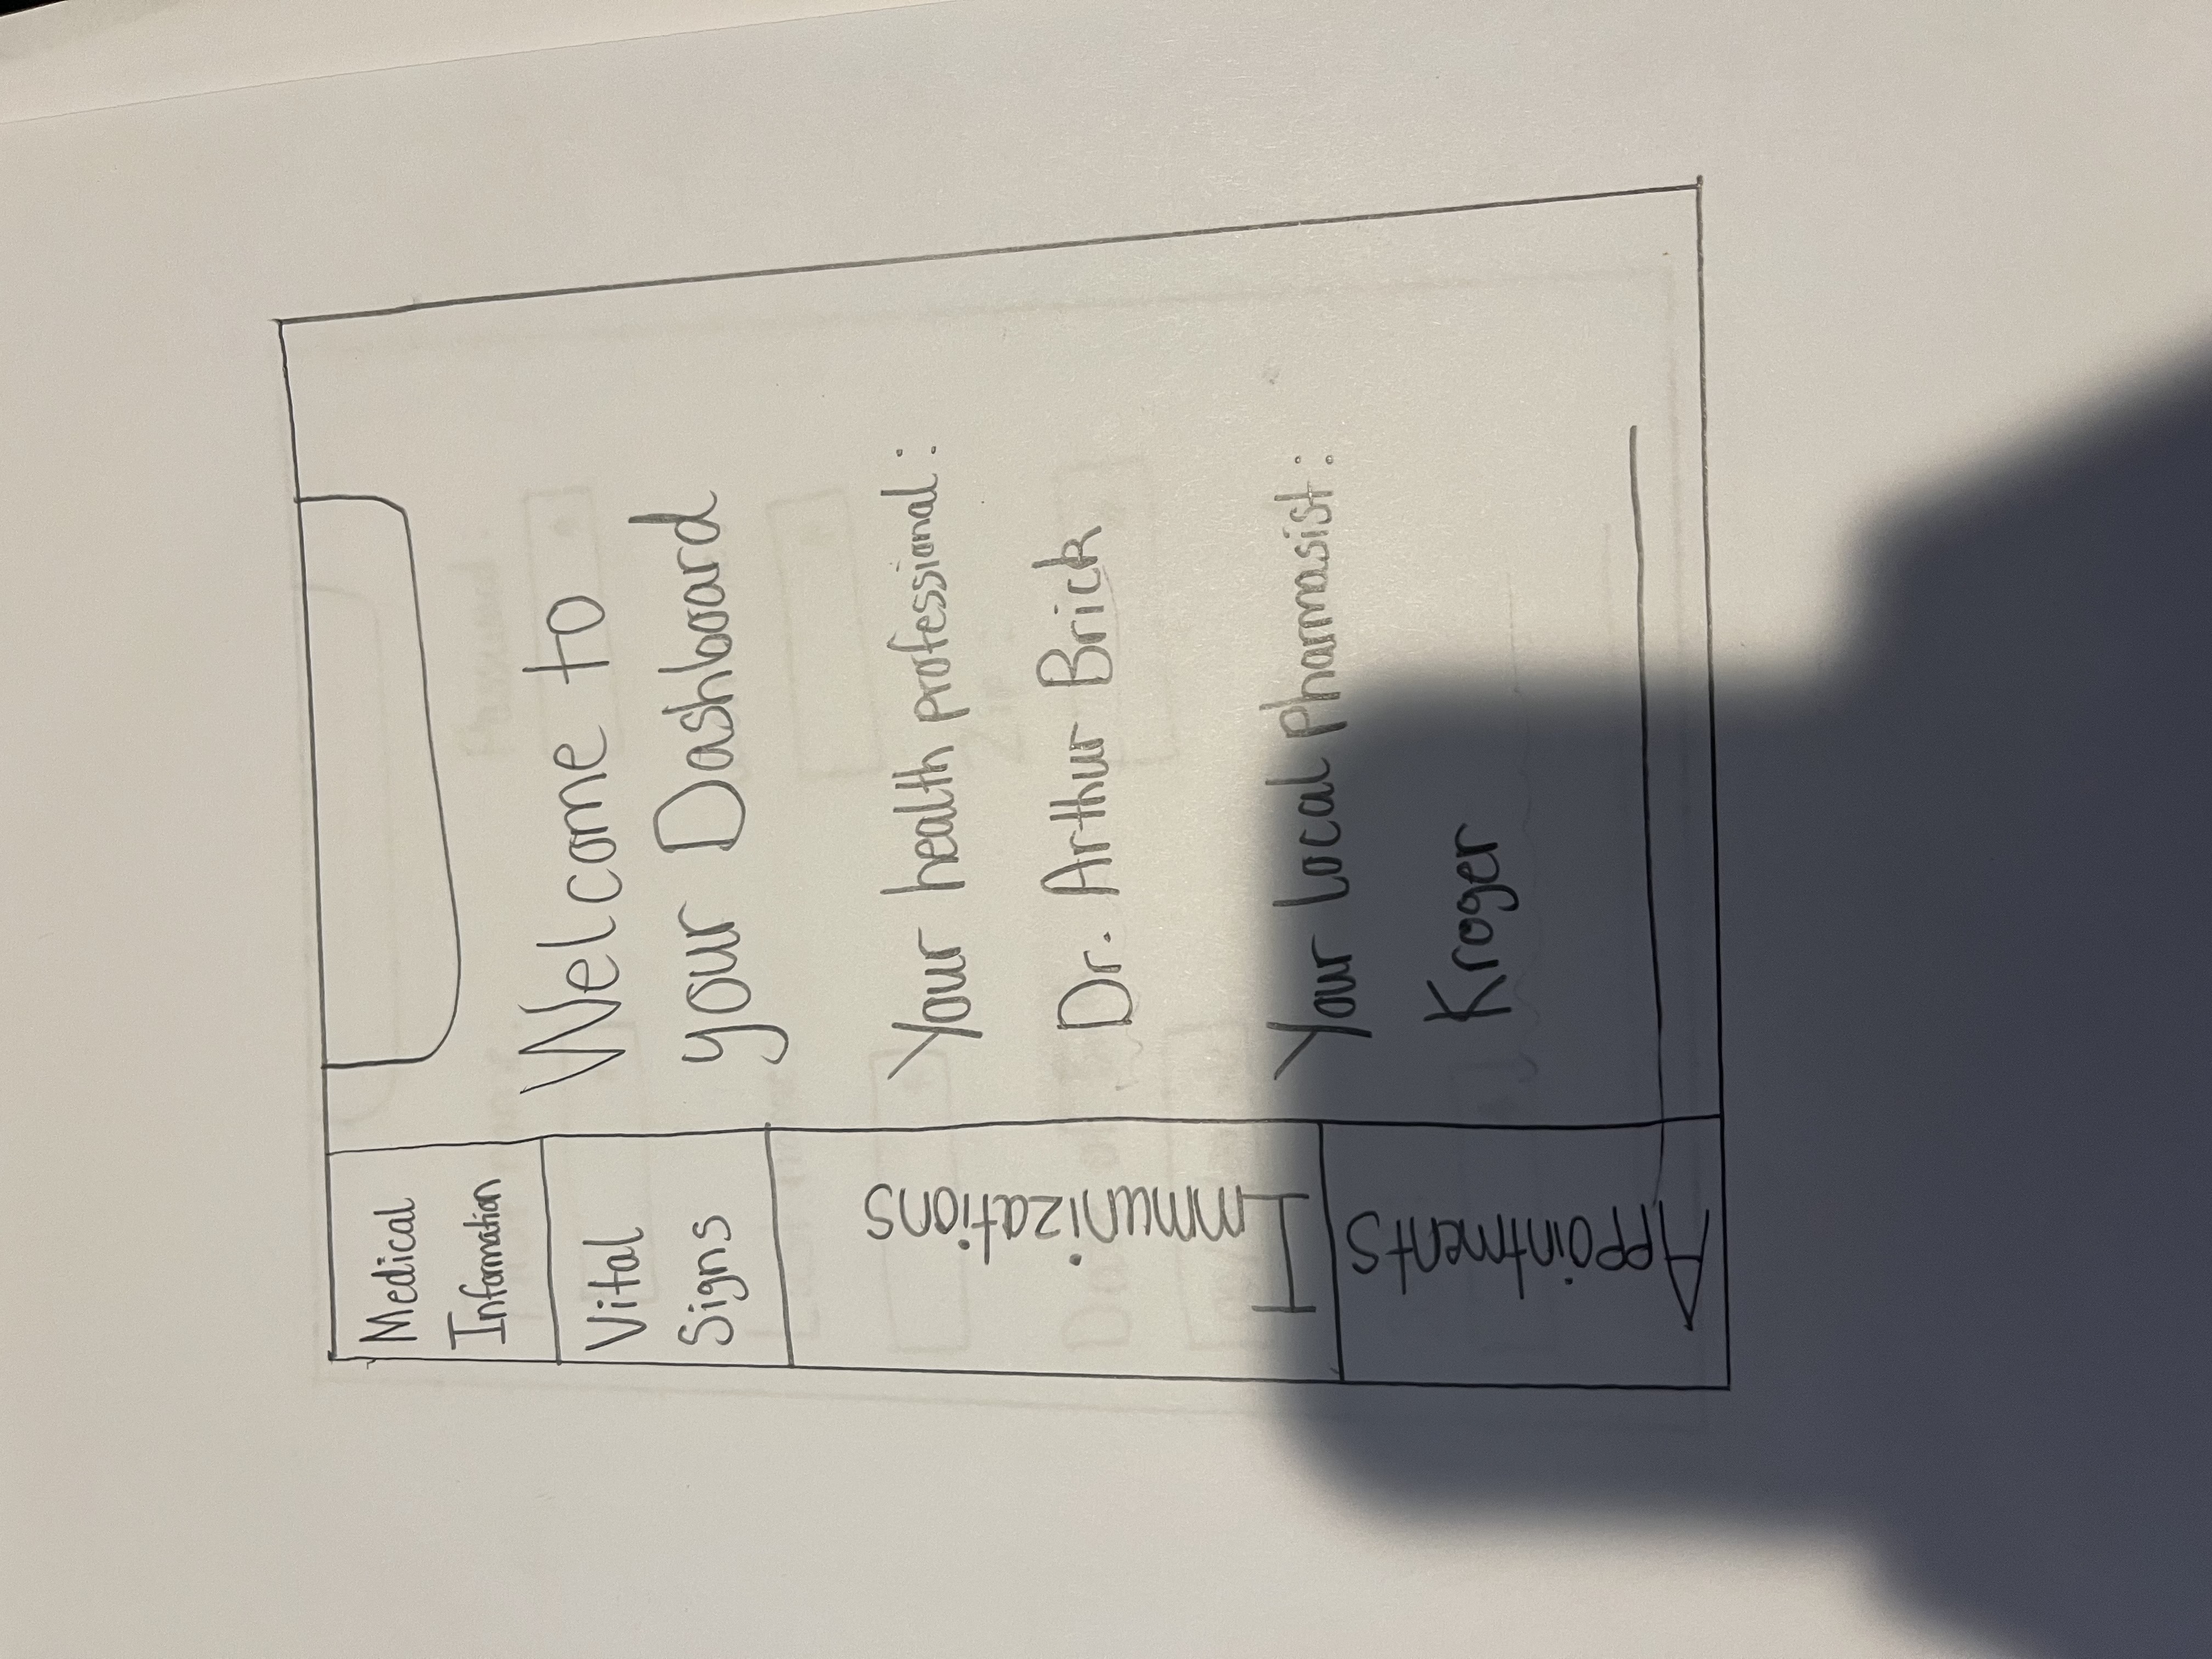 Medical
Information
Vital
Signs
Immunizations
Appointments
Welcome to
your Dashboard
Your health professional:
Dr. Arthur Brick
Your local pharmasist:
Kroger